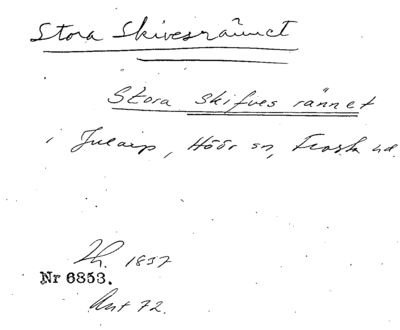 Stora Skivesrännet
Stora Skifves rännet
i Jularp, Höör sn, Frosta hd
Lh. 1837
Nr 6853.
Ant 72.